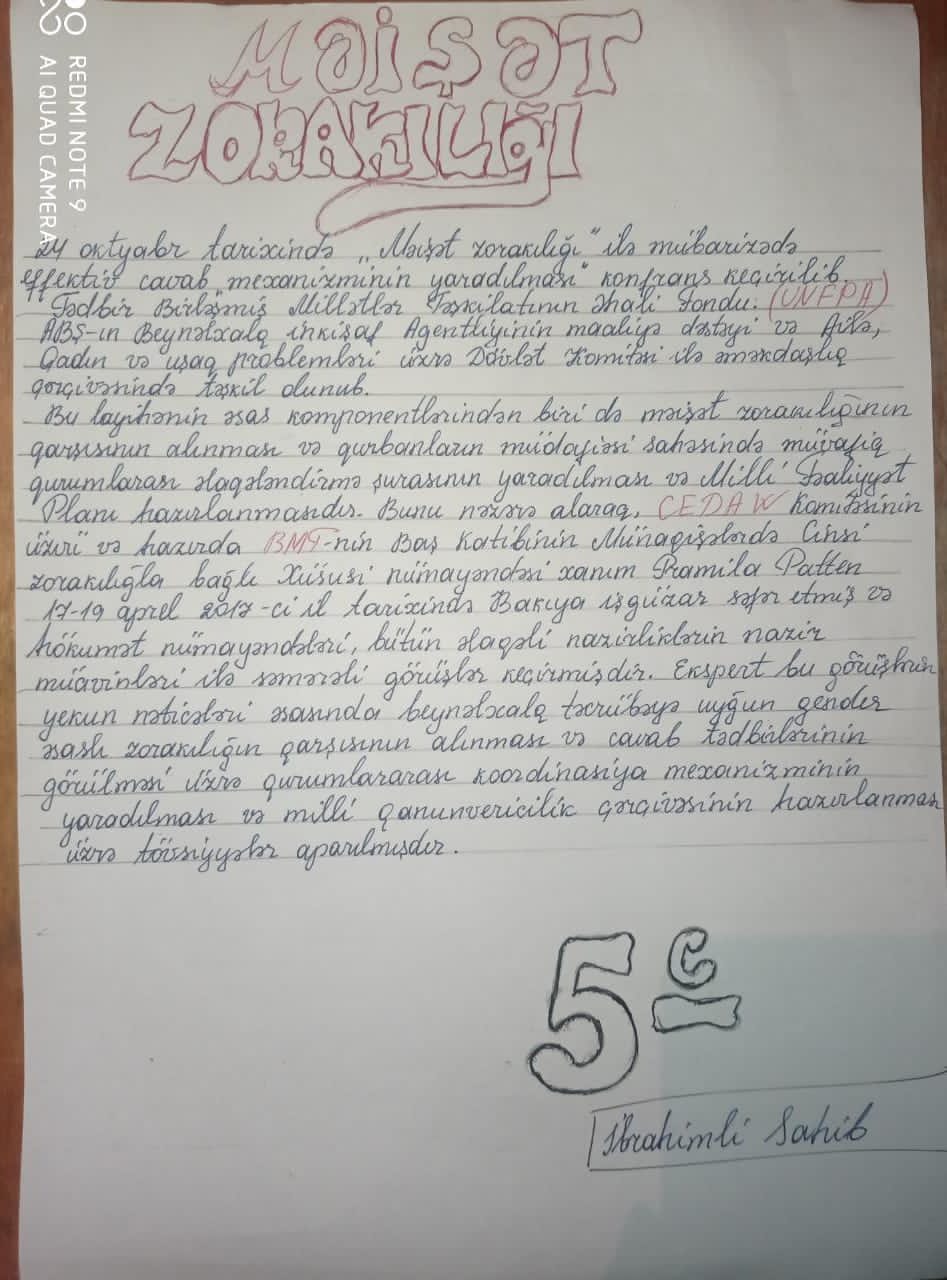 REDMI NOTE 9
AI QUAD CAMERA
MƏİŞƏT
ZORAKILIĞI
24 oktyabr tarixində „Məişət zorakılığı" ilə mübarizədə
effektiv cavab mexanizminin yaradılması" konfrans keçirilib.
Tədbir Birləşmiş Millətlər Təşkilatının Əhali Fondu. (UNFPA)
ABŞ-ın Beynəlxalq inkişaf Agentliyinin maaliyə dəstəyi və Ailə,
Qadın və uşaq problemləri üzrə Dövlət Komitəsi ilə əməkdaşlıq
çərçivəsində təşkil olunub.
Bu layihənin əsas komponentlərindən biri də məişət zorakılığının
qarşısının alınması və qurbanların müdafiəsi sahəsində müvafiq
qurumlarası əlaqələndirmə şurasının yaradılması və Milli Fəaliyyət
Planı hazırlanmasıdır. Bunu nəzərə alaraq, CEDAW Komitəsinin
üzvü və hazırda BMT-nin Baş Katibinin Münaqişələrdə Cinsi
zorakılığla bağlı Xüsusi nümayəndəsi xanım Pramila Patten
17-19 aprel 2017-ci il tarixində Bakıya işgüzar səfər etmiş və
hökumət nümayəndələri, bütün əlaqəli nazirliklərin nazir
müavinləri ilə səmərəli görüşlər keçirmişdir. Ekspert bu görüşlərin
yekun nəticələri əsasında beynəlxalq təcrübəyə uyğun gender
əsaslı zorakılığın qarşısının alınması və cavab tədbirlərinin
görülməsi üzrə qurumlararası koordinasiya mexanizminin
yaradılması və milli qanunvericilik çərçivəsinin hazırlanması
üzrə tövsiyyələr aparılmışdır.
5 c
İbrahimli Sahib